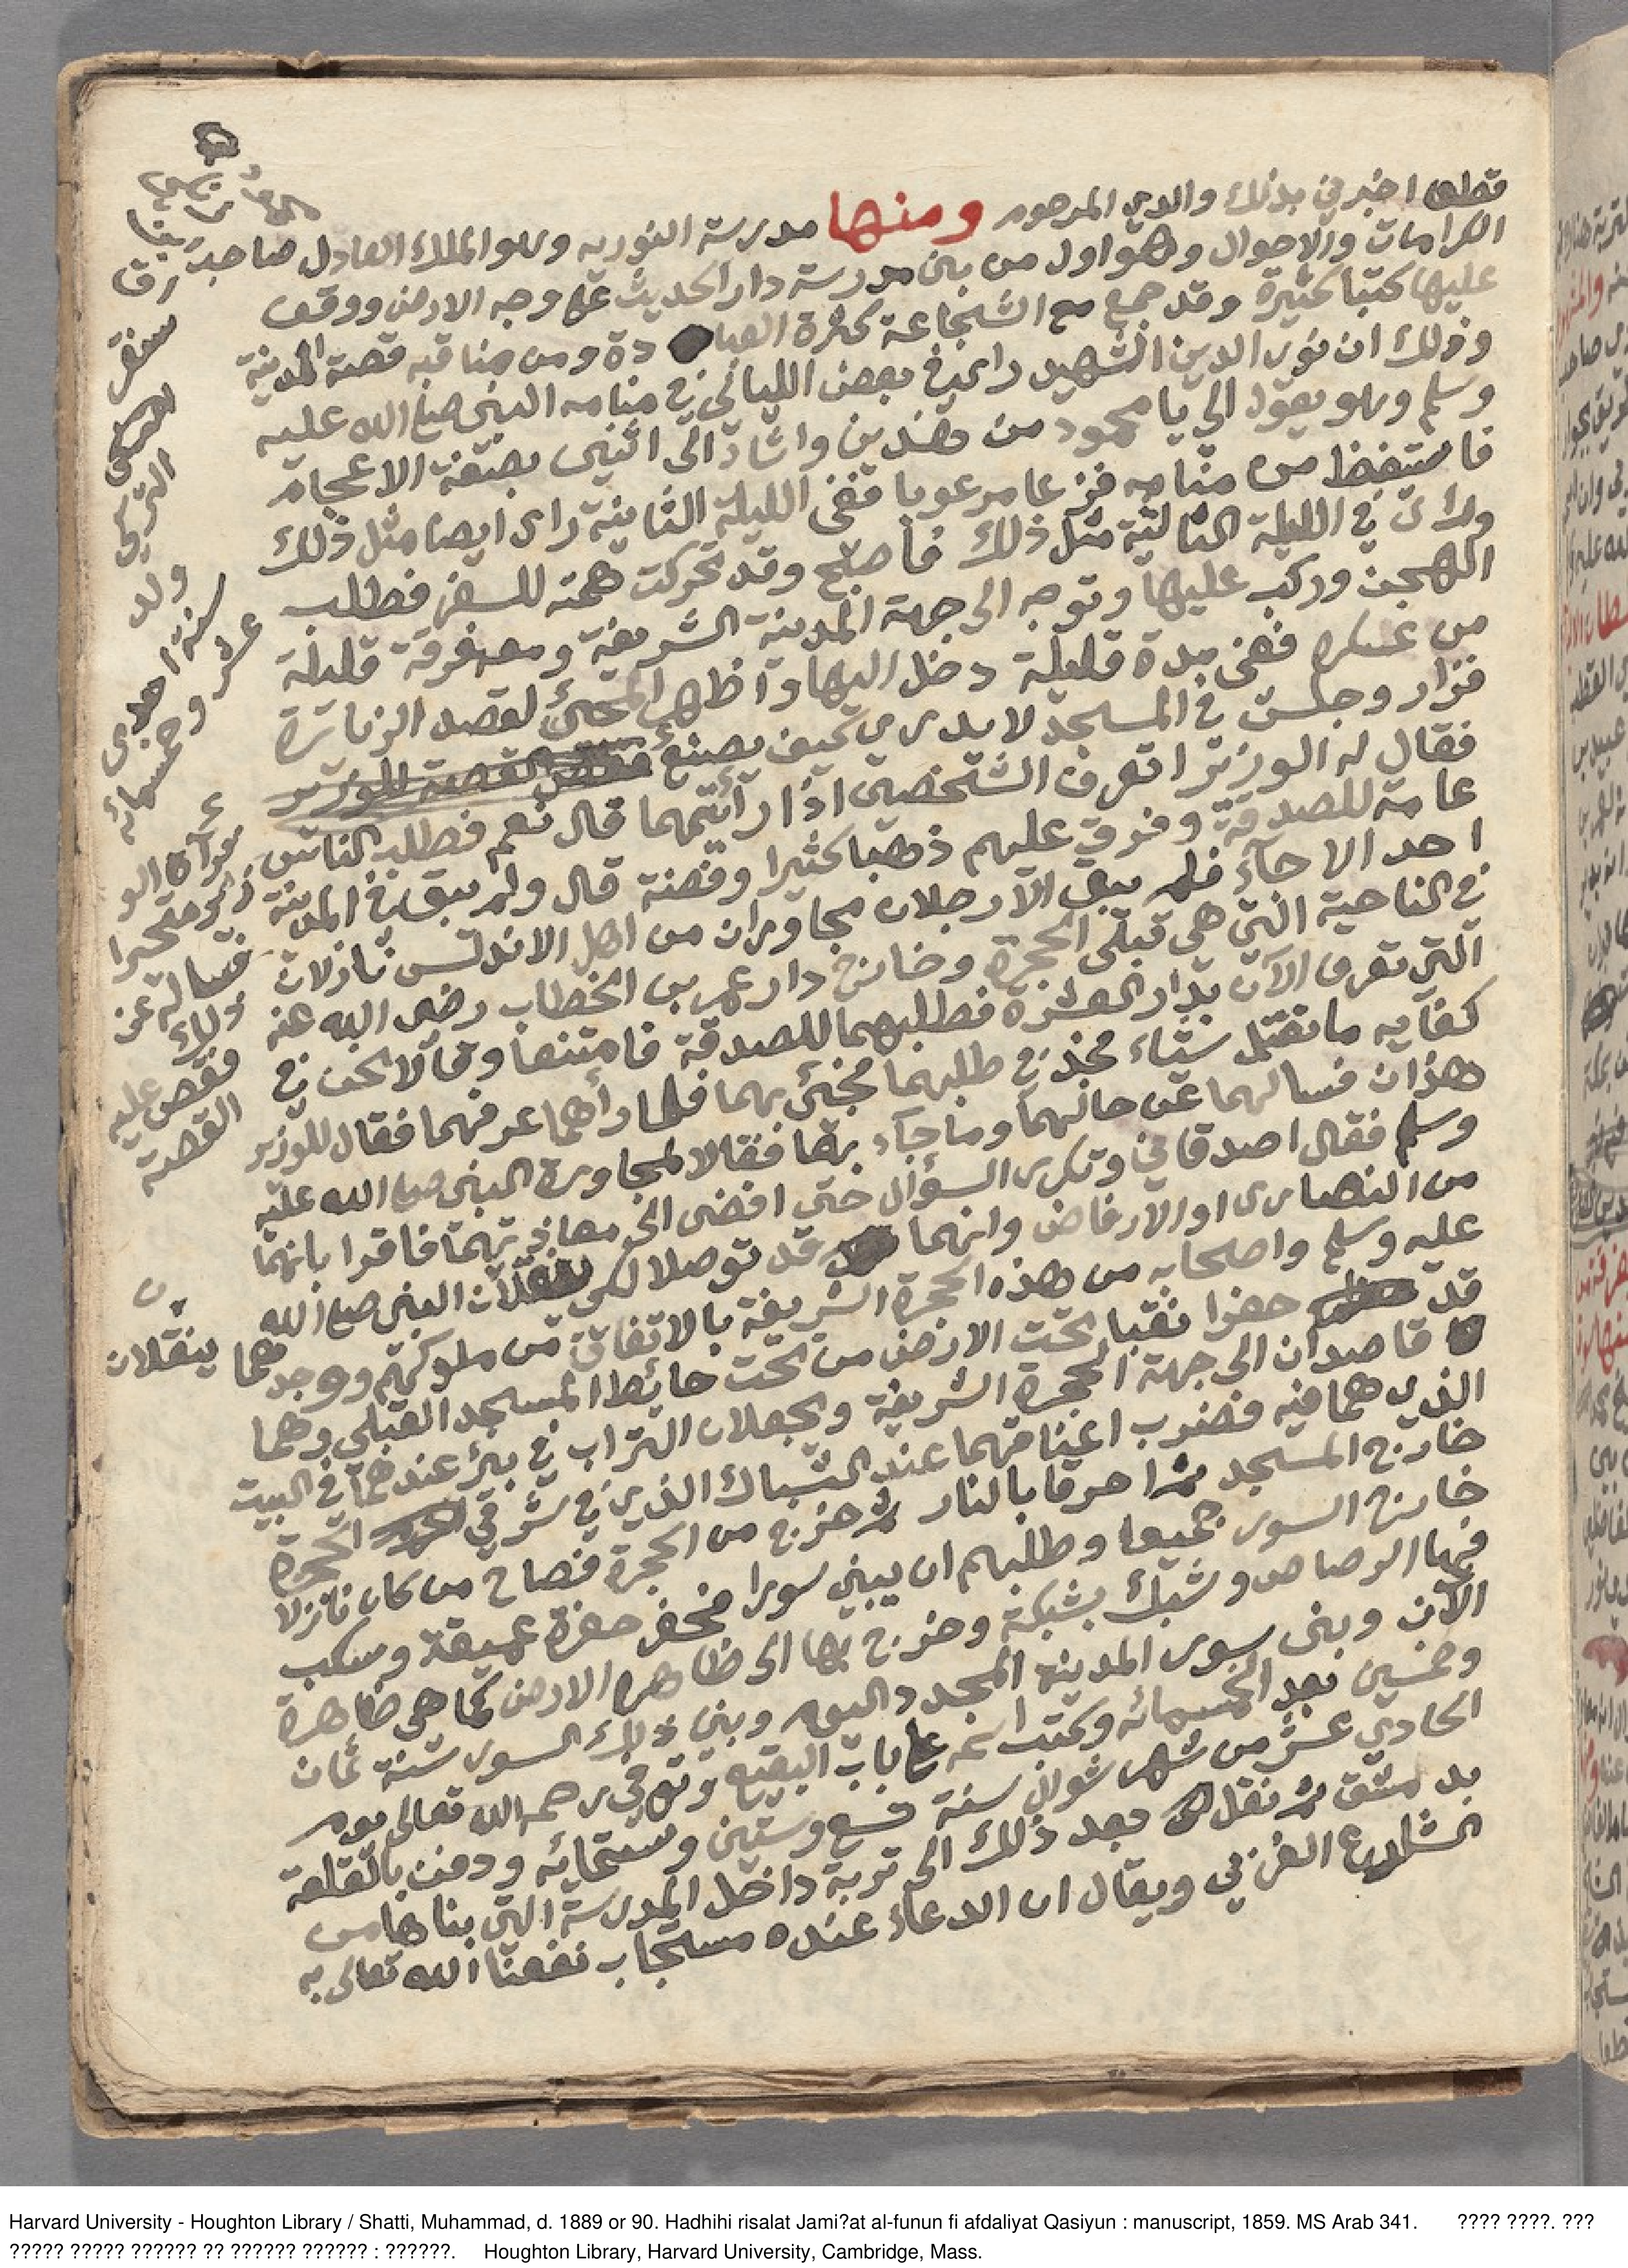 قطعا اخبرني بذلك والدي المرحوم ومنها مدرسة النوريه وهو الملك العادل صاحب
الكرامات والاحوال وهو اول من بنى مدرسة دار الحديث على وجه الارض ووقف
عليها كتبا كثيرة وقد جمع مع الشجاعة كثرة العبا دة ومن مناقبه قصة المدينة
وذلك ان نور الدين الشهيد راى في بعض الليالي في منامه النبي صلى الله عليه
وسلم وهو يقول الي يا محمود من هذين واشار الى اثنين بصفة الاعجام
فاستيقظ من منامه فزعا مرعوبا ففي الليلة الثانية راى ايضا مثل ذلك
وراى في الليلة الثالثة مثل ذلك فاصبح وقد تحركت همته للسفر فطلب
الهجن وركب عليها وتوجه الى جهة المدينة الشريفة ومعه فرقة قليلة
من عسكره ففي مدة قليلة دخل اليها واظهر المجئ لقصد الزيارة
فزار وجلس في المسجد لا يدري كيف يصنع
فقال له الوزير اتعرف الشخصين اذا رأيتهما قال نعم فطلب الناس
عامة للصدقة وفرق عليهم ذهبا كثيرا وفضة قال ولم يبق في المدينة
احد الا جآء فلم يبق الا رجلان مجاوران من اهل الاندلس نازلان
في الناحية التي هي قبلي الحجرة وخارج دار عمر بن الخطاب رضي الله عنه
التي تعرف الآن بدار العشرة فطلبهما للصدقة فامتنعا وقالا نحن في
كفايه ما نقبل شياء فجد في طلبهما فجئ بهما فلما رأهما عرفهما فقال للوزير
هذان فسالهما عن حالهما وما جآء بهما فقالا لمجاورة النبي صلى الله عليه
وسلم فقال اصدقاني وتكرر السؤال حتى افضى الى معاقبتهما فاقرا بانهما
من النصارى او الارفاض وانهما قد توصلا لكي ينقلان النبي صلى الله
عليه وسلم واصحابه من هذه الحجرة الشريفة بالاتفاق من ملوكهم ووجدهما
قد حفرا نقبا تحت الارض من تحت حائط المسجد القبلي وهما
قاصدان الى جهة الحجرة الشريفة ويجعلان التراب في بئر عندهما في البيت
الذي هما فيه فضرب اعناقهما عند الشباك الذي في شرقي الحجرة
خارج المسجد ثم احرقا بالنار ثم خرج من الحجرة فصاح من كان نازلا
خارج السور جميعا وطلبهم ان يبني سورا فحفر حفرة عميقة وسكب
فيها الرصاص وشبك بشبكة وخرج بها الى ظاهر الارض كما هي ظاهرة
الآن وبنى سور المدينة المجدد اليوم وبني ذلك السور سنة ثمان
وخمسين بعد الخمسمائه وكتب اسمه على باب البقيع وتوفي رحمه الله تعالى يوم
الحادي عشر من شهر شوال سنة تسع وستين وستمائه ودفن بالقلعة
بدمشق ثم نقل بعد ذلك الى تربة داخل المدرسة التي بناها من
الشارع الغربي ويقال ان الدعاء عنده مستجاب نفعنا الله تعالى به
سنقر
التركي
ولد
سنة احدى
عشر وخمسمائه
فرآه الو
زير متحيرا
فساله عن
ذلك
فقص عليه
القصة
ينقلان